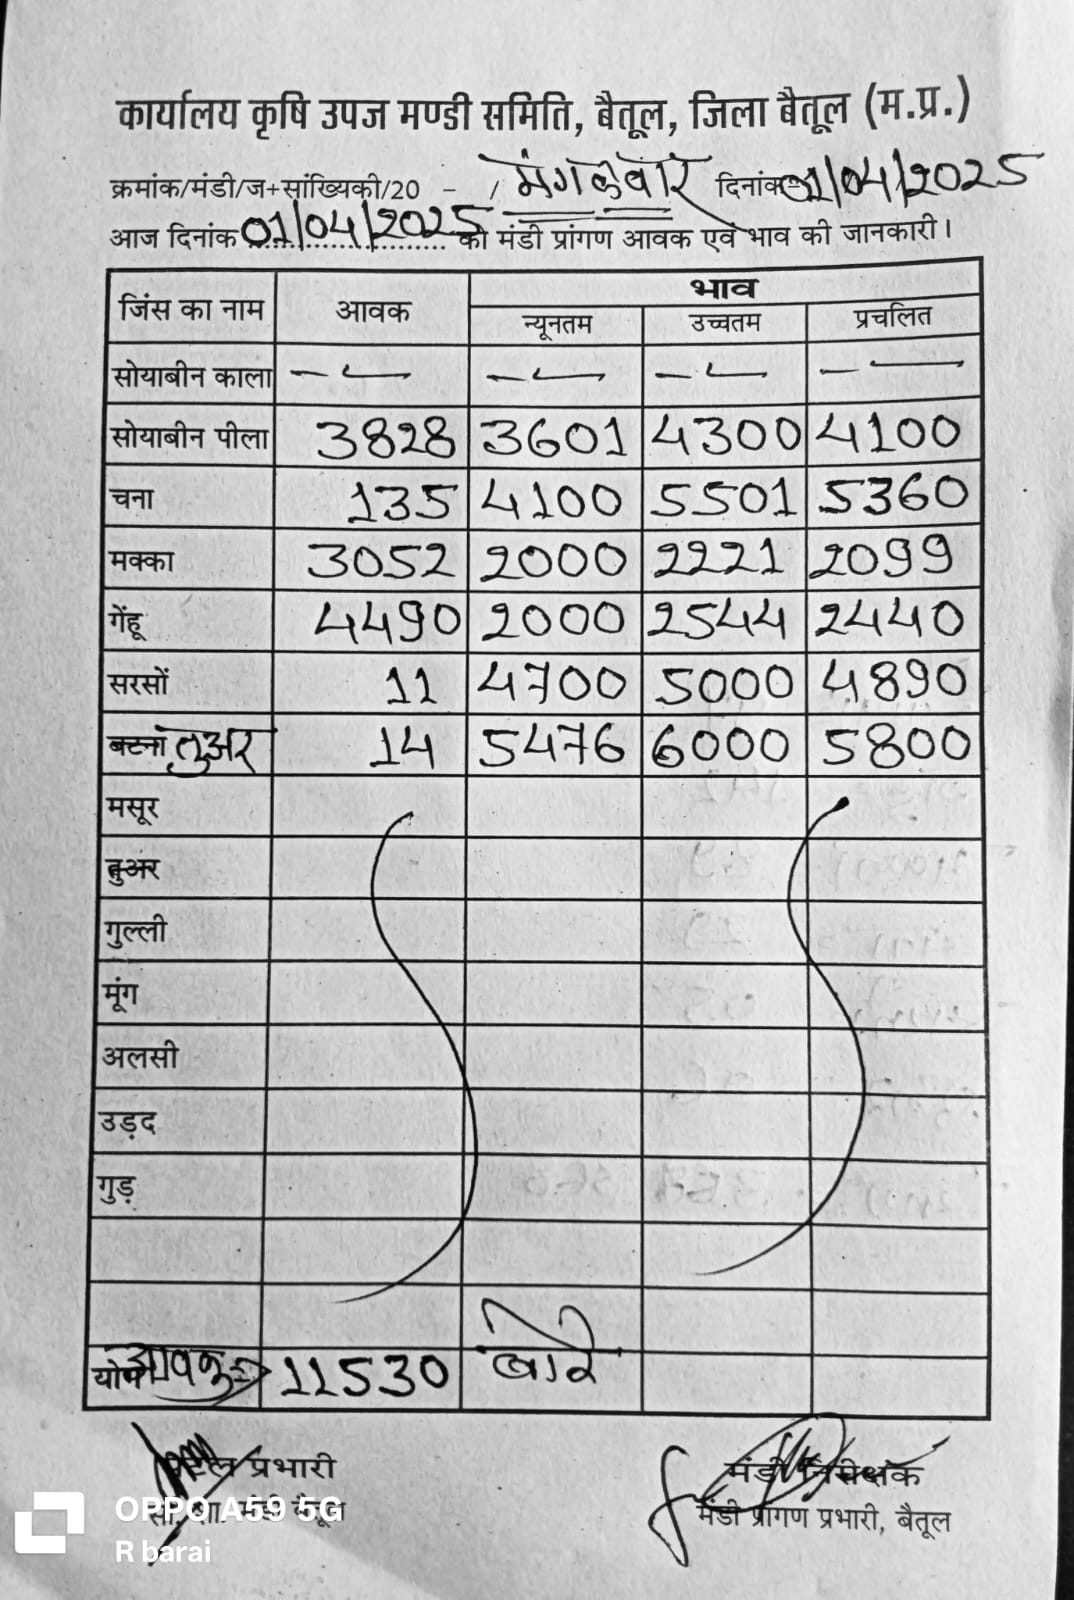 कार्यालय कृषि उपज मण्डी समिति, बैतूल, जिला बैतूल (म.प्र.)
क्रमांक/मंडी/ज+सांख्यिकी/20 - / मंगलवार दिनांक 01/04/2025
आज दिनांक 01/04/2025 को मंडी प्रांगण आवक एवं भाव की जानकारी।
जिंस का नाम आवक भाव
न्यूनतम उच्चतम प्रचलित
सोयाबीन काला - - - - - - - -
सोयाबीन पीला 3828 3601 4300 4100
चना 135 4100 5501 5360
मक्का 3052 2000 2221 2099
गेंहू 4490 2000 2544 2440
सरसों 11 4700 5000 4890
बटना तुअर 14 5476 6000 5800
मसूर
तुअर
गुल्ली
मूंग
अलसी
उड़द
गुड़
योग आवक 11530 बोरे
प्रभारी मंडी निरीक्षक
मंडी बैतूल मंडी प्रांगण प्रभारी, बैतूल
OPPO A59 5G
R barai